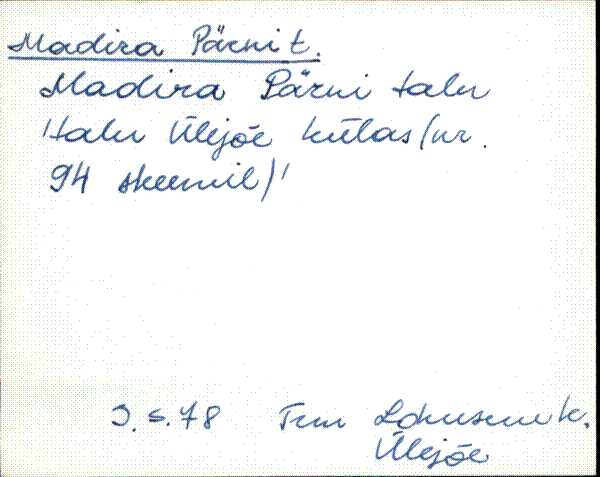 Madira Pärni t.
Madira Pärni talu
'talu Ülejõe külas (nr.
94 skeemil)'
J. S. 78 Trm Lohusuu k.
Ülejõe